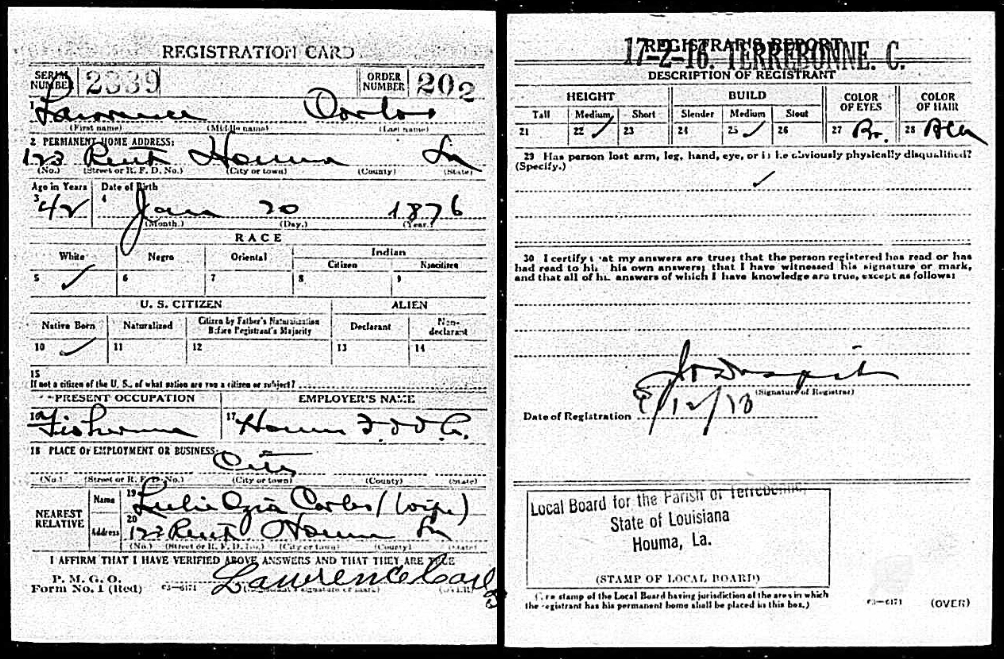 REGISTRATION CARD
SERIAL NUMBER 2339
ORDER NUMBER 202
1 Lawrence
(First name) (Middle name) (Last name)
2 PERMANENT HOME ADDRESS:
123 Houma La
(No.) (Street or R. F. D. No.) (City or town) (County) (State)
Age in Years Date of Birth
3 42 4 Jan 20 1876
(Month.) (Day.) (Year.)
RACE
White Negro Oriental Indian
Citizen Noncitizen
5 ✓ 6 7 8 9
U. S. CITIZEN ALIEN
Native Born Naturalized Citizen by Father's Naturalization Before Registrant's Majority Declarant Non-declarant
10 ✓ 11 12 13 14
15
If not a citizen of the U. S., of what nation are you a citizen or subject?
PRESENT OCCUPATION EMPLOYER'S NAME
16 Fisherman 17 Houma
18 PLACE OF EMPLOYMENT OR BUSINESS:
(No.) (Street or R. F. D. No.) (City or town) (County) (State)
NEAREST RELATIVE
Name 19 (Wife)
Address 20 123 Houma La
(No.) (Street or R. F. D. No.) (City or town) (County) (State)
I AFFIRM THAT I HAVE VERIFIED ABOVE ANSWERS AND THAT THEY ARE TRUE
P. M. G. O.
Form No. 1 (Red) 03—6171 Lawrence
REGISTRAR'S REPORT
17-2-16. TERREBONNE. C.
DESCRIPTION OF REGISTRANT
HEIGHT BUILD COLOR OF EYES COLOR OF HAIR
Tall Medium Short Slender Medium Stout
21 22 ✓ 23 24 25 ✓ 26 27 Br. 28
29 Has person lost arm, leg, hand, eye, or is he obviously physically disqualified?
(Specify.)
✓
30 I certify that my answers are true; that the person registered has read or has
had read to him his own answers; that I have witnessed his signature or mark,
and that all of his answers of which I have knowledge are true, except as follows:
(Signature of Registrar)
Date of Registration 9/12/18
Local Board for the Parish of Terrebonne,
State of Louisiana
Houma, La.
(STAMP OF LOCAL BOARD)
(The stamp of the Local Board having jurisdiction of the area in which
the registrant has his permanent home shall be placed in this box.)
03—6171 (OVER)